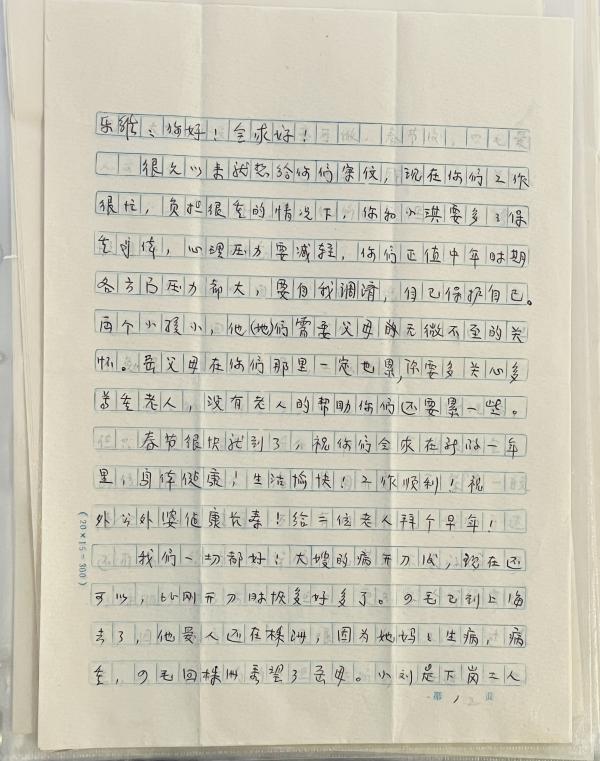 乐维：你好！全家好！
很久以来就想给你们写信，现在你们工作
很忙，负担很重的情况下，你和小琪要多多保
重身体，心理压力要减轻，你们正值中年时期
各方面压力都大，要自我调消，自己保护自己。
两个小孩小，他(她)们需要父母的无微不至的关
怀。岳父母在你们那里一定也累，你要多关心多
尊重老人，没有老人的帮助你们还要累一些。
春节很快就到了，祝你们全家在新的一年
里，身体健康！生活愉快！工作顺利！祝
外公外婆健康长寿！给二位老人拜个早年！
我们一切都好！大嫂的病开刀后，现在还
可以，比刚开刀时候多好多了。四毛已到上海
去了，他爱人还在株洲，因为她妈妈生病，病
重，四毛回株洲看望了岳母。小刘是下岗工人
(20×15=300)
第 1 页